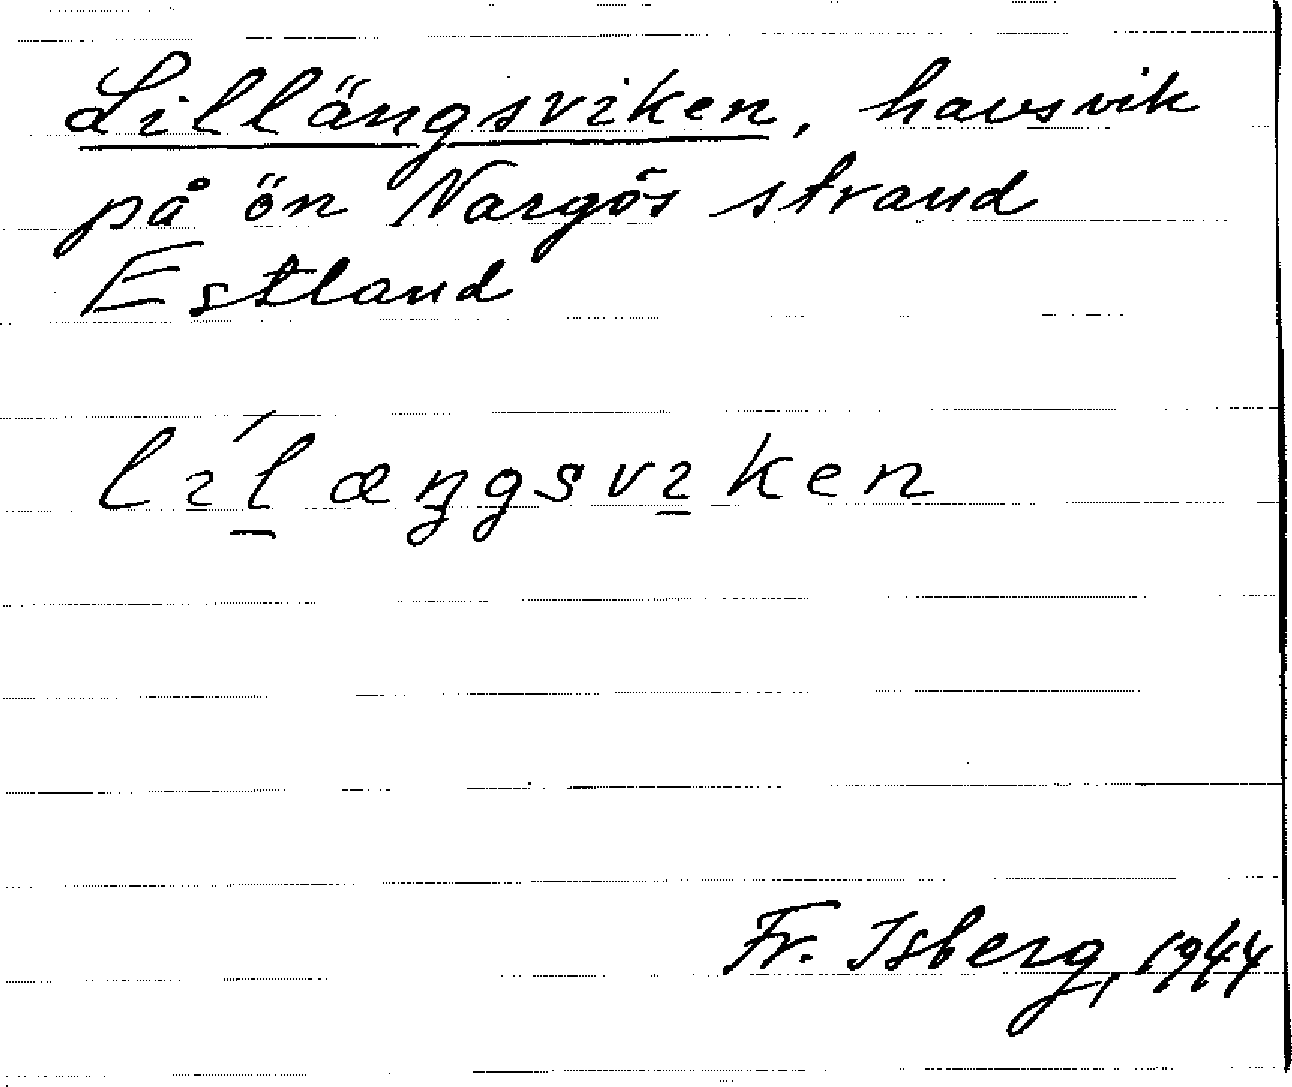 Lillängsviken, havsvik
på ön Nargös strand
Estland
lı́l̲æŋgsvı̲ken
Fr. Isberg, 1944